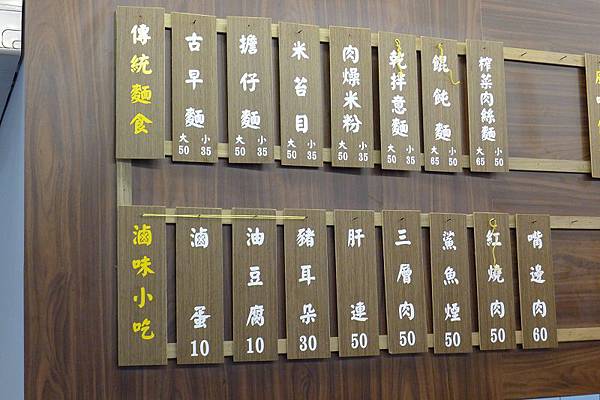 傳統麵食
古早麵 大50 小35
擔仔麵 大50 小35
米苔目 大50 小35
肉燥米粉 大50 小35
乾拌意麵 大50 小35
餛飩麵 大65 小50
榨菜肉絲麵 大65 小50
滷味小吃
滷蛋 10
油豆腐 10
豬耳朵 30
肝連 50
三層肉 50
鯊魚煙 50
紅燒肉 50
嘴邊肉 60